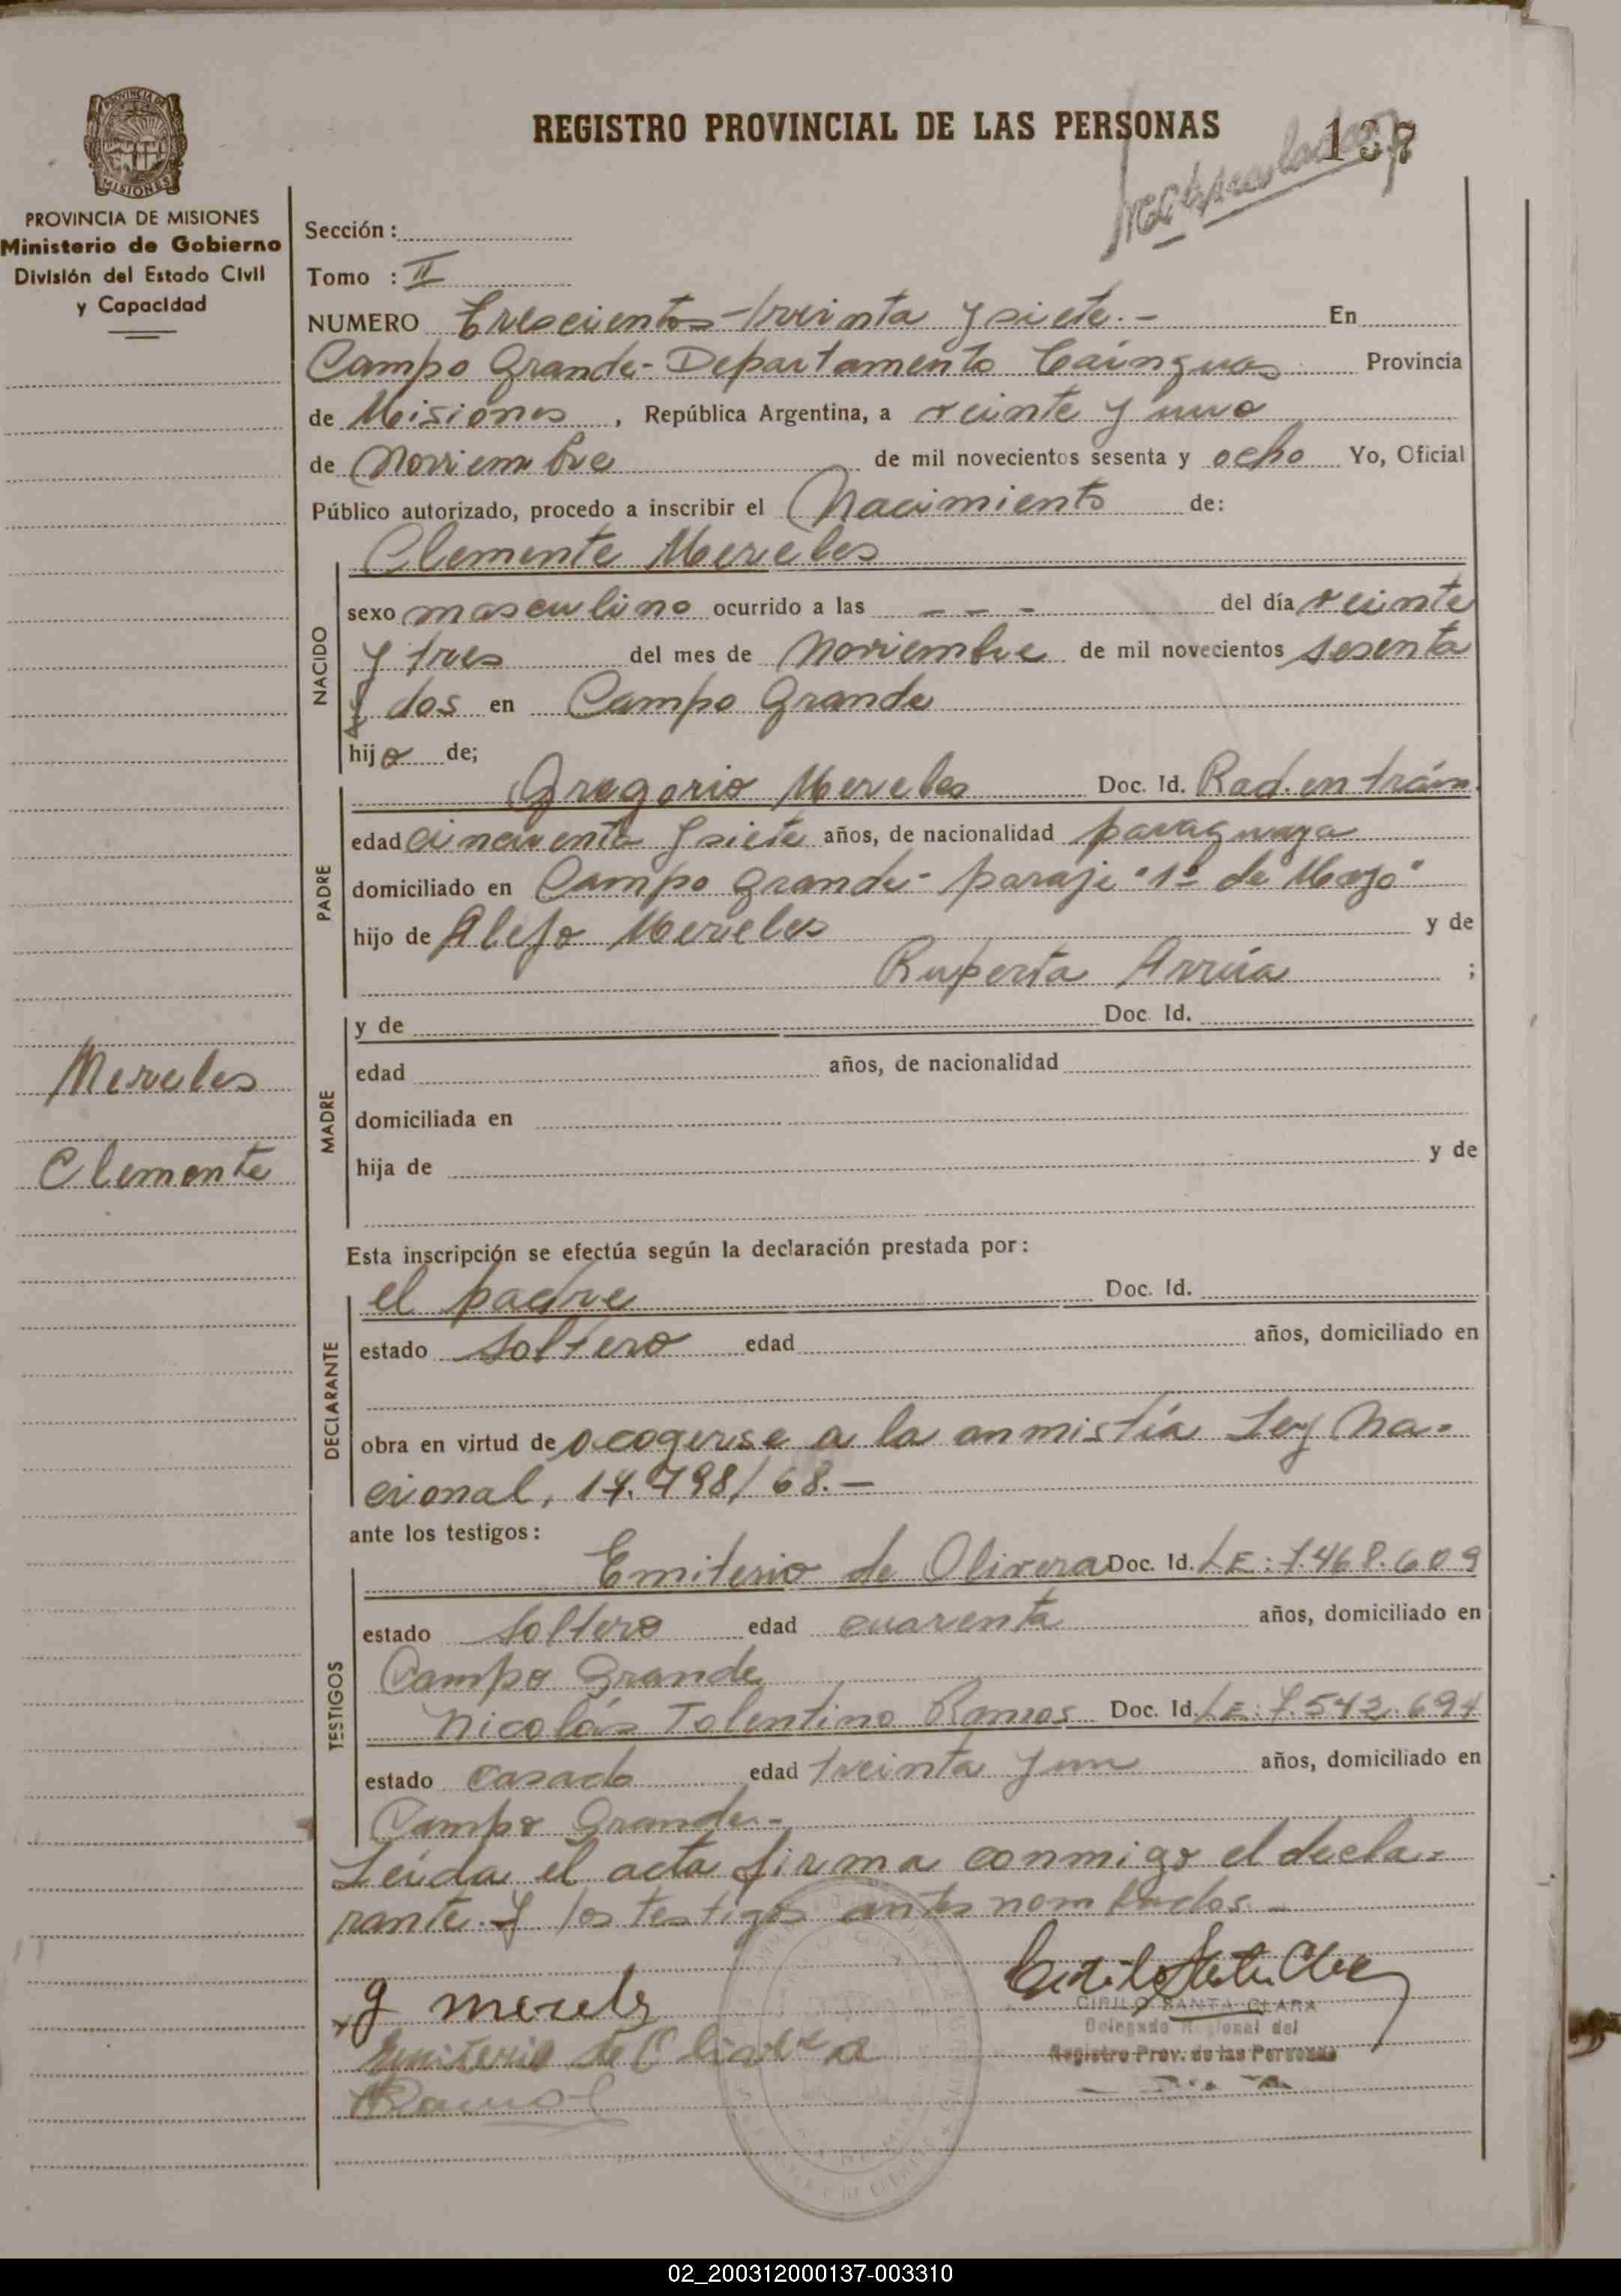 REGISTRO PROVINCIAL DE LAS PERSONAS
137
PROVINCIA DE MISIONES
Ministerio de Gobierno
División del Estado Civil
y Capacidad
Sección :
Tomo : II
NUMERO Trescientos treinta y siete.- En
Campo Grande- Departamento Cainguas Provincia
de Misiones, República Argentina, a veinte y uno
de Noviembre de mil novecientos sesenta y ocho Yo, Oficial
Público autorizado, procedo a inscribir el Nacimiento de:
Clemente Mereles
NACIDO
sexo masculino ocurrido a las - - - del día veinte
y tres del mes de Noviembre de mil novecientos sesenta
y dos en Campo Grande
hijo de;
PADRE
Gregorio Mereles Doc. Id. Rad. en trám.
edad cincuenta y siete años, de nacionalidad paraguaya
domiciliado en Campo Grande- paraje "1º de Mayo"
hijo de Alejo Mereles y de
Ruperta Arrúa ;
MADRE
y de Doc. Id.
edad años, de nacionalidad
domiciliada en
hija de y de
Mereles
Clemente
Esta inscripción se efectúa según la declaración prestada por:
DECLARANTE
el padre Doc. Id.
estado soltero edad años, domiciliado en
obra en virtud de acogerse a la anmistía Ley Na=
cional, 17.798/68.-
ante los testigos:
TESTIGOS
Emiterio de Olivera Doc. Id. LE: 7.468.609
estado soltero edad cuarenta años, domiciliado en
Campo Grande
Nicolás Tolentino Ramos Doc. Id. LE: 7.542.694
estado casado edad treinta y un años, domiciliado en
Campo Grande.-
Leída el acta firma conmigo el decla=
rante y los testigos antes nombrados.-
g mereles
Emiterio de Olivera
Ramos
CIRILO SANTA CLARA
Delegado Regional del
Registro Prov. de las Personas
02_200312000137-003310